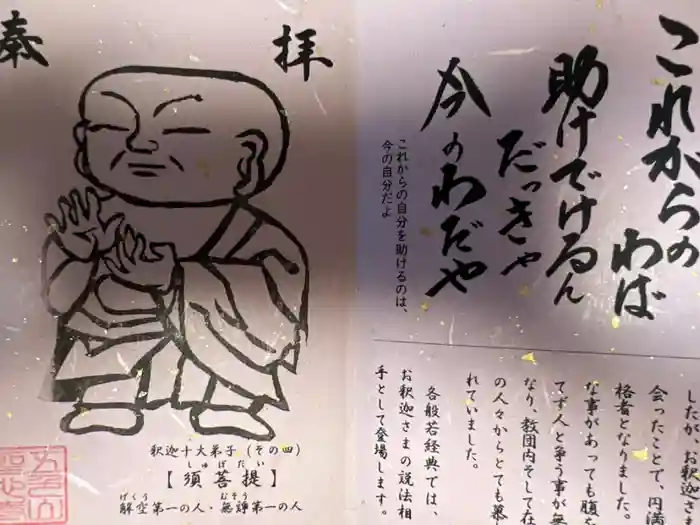 これからの
わば
助けでけるん
だっきゃ
今のわだや
これからの自分を助けるのは、
今の自分だよ
したが、お釈迦さま
会ったことで、円満
格者となりました。
な事があっても腹を
てず人と争う事が無
なり、教団内そして在
の人々からとても慕
れていました。
各般若経典では、
お釈迦さまの説法相
手として登場します。
拝
奉
釈迦十大弟子（その四）
しゅぼだい
【須菩提】
げくう　むそう
解空第一の人・無諍第一の人